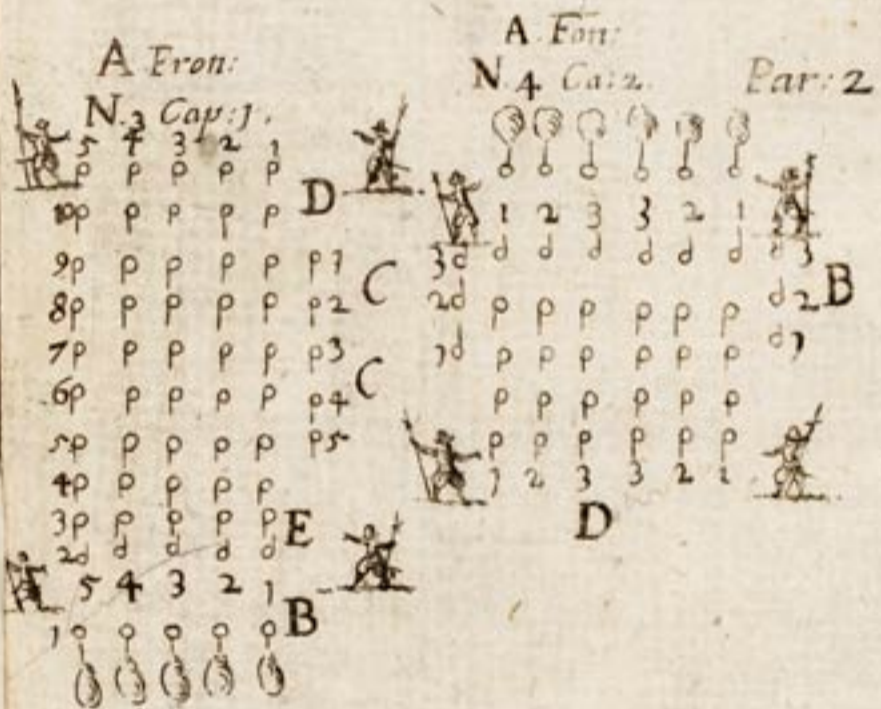 A Fron:
N. 3 Cap: 1.
5 4 3 2 1
p p p p p D
10p p p p p
9p p p p p p1 C
8p p p p p p2
7p p p p p p3 C
6p p p p p p4
5p p p p p p5
4p p p p p
3p p p p p E
2d d d d d
5 4 3 2 1
B
1
A Fon:
N. 4 Ca: 2. Par: 2
1 2 3 3 2 1
3d d d d d d d d 3
B
2d d 2
p p p p p p
1d d 1
p p p p p p
p p p p p p
p p p p p p
1 2 3 3 2 1
D